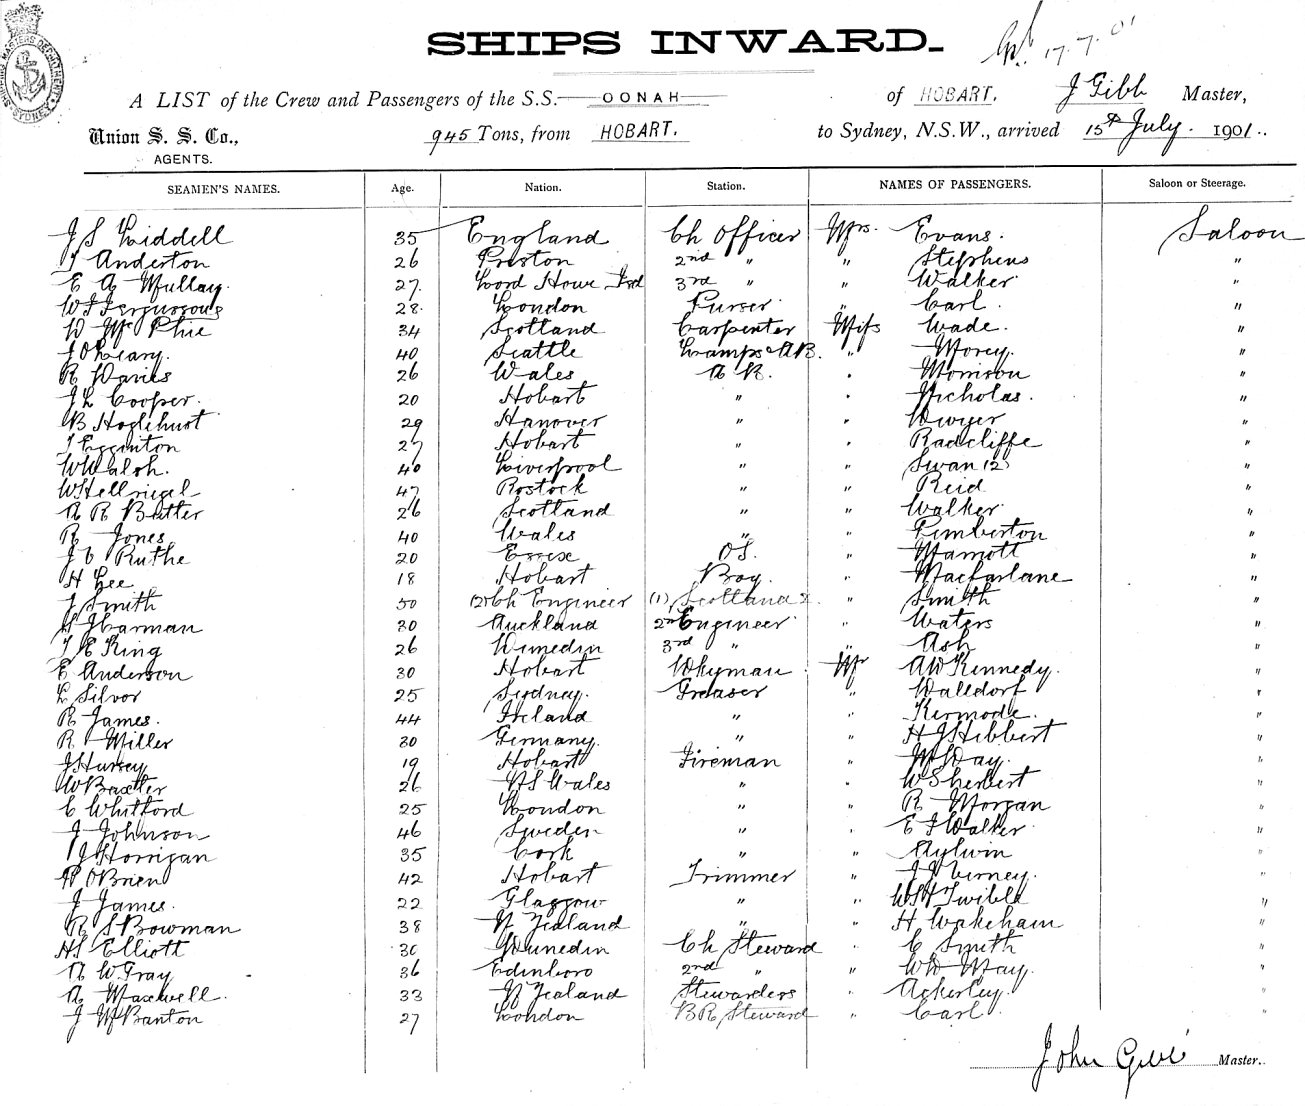 SHIPS INWARD.
17.7.01
SHIPPING MASTERS DEPARTMENT SYDNEY
A LIST of the Crew and Passengers of the S.S. OONAH of HOBART. J Gibb Master,
Union S. S. Co., 945 Tons, from HOBART. to Sydney, N.S.W., arrived 15th July. 1901..
AGENTS.
SEAMEN'S NAMES. Age. Nation. Station. NAMES OF PASSENGERS. Saloon or Steerage.
J S Liddell 35 England Ch Officer Mrs. Evans. Saloon
Anderton 26 Preston 2nd " " Stephens "
E A Mullay. 27. Lord Howe Isd 3rd " " Walker "
W Fergussons 28. London Purser " Carl. "
W McPhie 34 Scotland Carpenter Miss Wade. "
J OLeary. 40 Seattle Lamps & AB. " Morey. "
R Davies 26 Wales A B. " Morrison "
J L Cooper. 20 Hobart " " Nicholas. "
B Hoglhurst 29 Hanover " " Dwyer "
T Egginton 27 Hobart " " Radcliffe "
W Walsh. 40 Liverpool " " Swan (2) "
W Hellriegel 47 Rostock " " Reid "
A R Butter 26 Scotland " " Walker "
R Jones 40 Wales " " Pemberton "
J C Ruthe 20 Essex OS. " Marriott "
H Lee 18 Hobart Boy. " Macfarlane "
J Smith 50 (2) Ch Engineer (1) Scotland 2. " Smith "
Harman 30 Auckland 2nd Engineer " Waters "
T E King 26 Dunedin 3rd " " Ash "
E Anderson 30 Hobart Whyman Mr AW Kennedy. "
L Silvor 25 Sydney. Greaser " Walldorf "
R James. 44 Ireland " " Kermode. "
R Miller 30 Germany. " " H J Hibbert "
J Hursey 19 Hobart Fireman " Day. "
W Baxter 26 N S Wales " " W Sherbert "
C Whitford 25 London " " R Morgan "
J Johnson 46 Sweden " " E J Walker "
J Horrigan 35 Cork " " Aylwin "
OBrien 42 Hobart Trimmer " J Verney. "
J James. 22 Glasgow " " W H Twible "
R S Bowman 38 N Zealand " " H Wakeham "
HS Elliott 30 Dunedin Ch Steward " C Smith "
A W Gray 36 Edinboro 2nd " " WD May. "
A Maxwell. 33 N Zealand Stewardess " Ackerley. "
J McBanton 27 London BR Steward " Carl "
John Gibb Master..